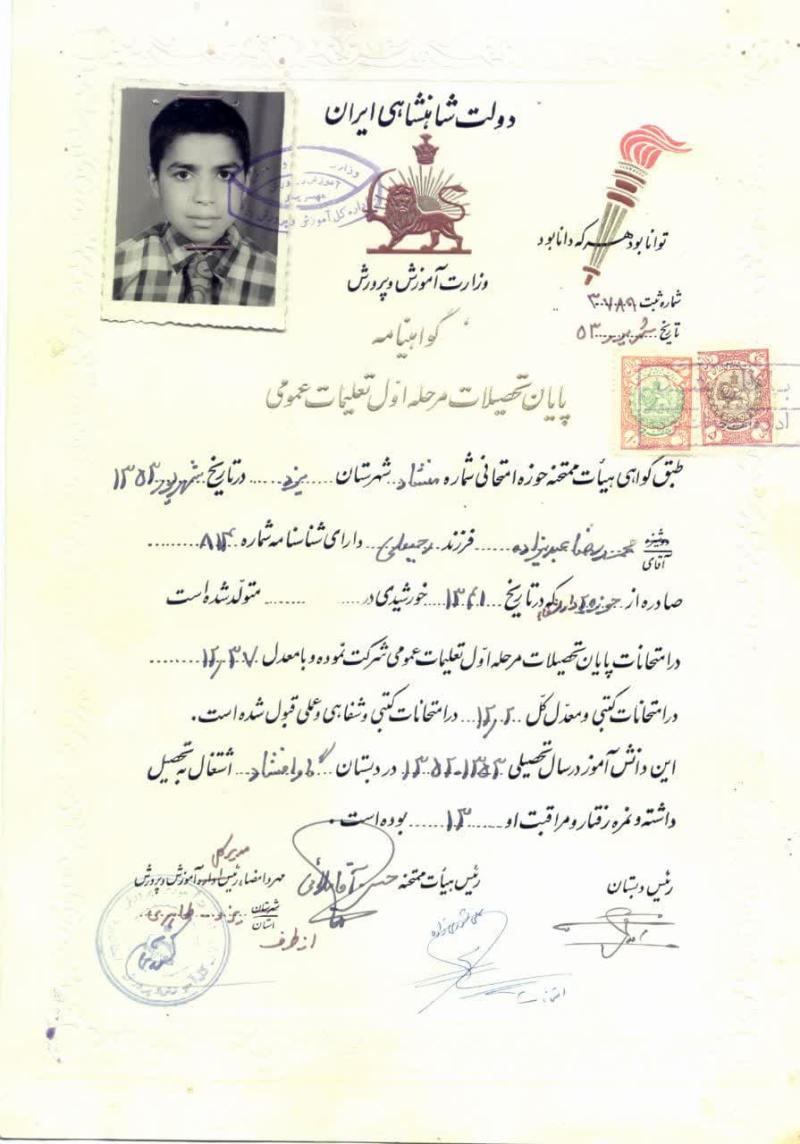 دولت شاهنشاهی ایران
توانا بود هر که دانا بود
وزارت آموزش و پرورش
شماره ثبت ۳۰۷۸۹
تاریخ شهریور ۵۳
گواهینامه
پایان تحصیلات مرحله اول تعلیمات عمومی
طبق گواهی هیأت ممتحنه حوزه امتحانی شماره منشاد شهرستان یزد در تاریخ شهریور ۱۳۵۳
دوشیزه
آقای
محمدرضا فرزند رجبعلی دارای شناسنامه شماره
صادره از حوزه در تاریخ ۱۳۴۱ خورشیدی در متولد شده است
در امتحانات پایان تحصیلات مرحله اول تعلیمات عمومی شرکت نموده و با معدل ۱۲٫۳۷
در امتحانات کتبی و معدل کل ۱۲٫۲ در امتحانات کتبی و شفاهی و عملی قبول شده است.
این دانش آموز در سال تحصیلی ۱۳۵۳-۱۳۵۲ در دبستان منشاد اشتغال به تحصیل
داشته و نمره رفتار و مراقبت او ۱۳ بوده است.
رئیس دبستان
رئیس هیأت ممتحنه
مدیر کل
مهر و امضاء رئیس اداره آموزش و پرورش
شهرستان
استان
یزد طاهری
از طرف